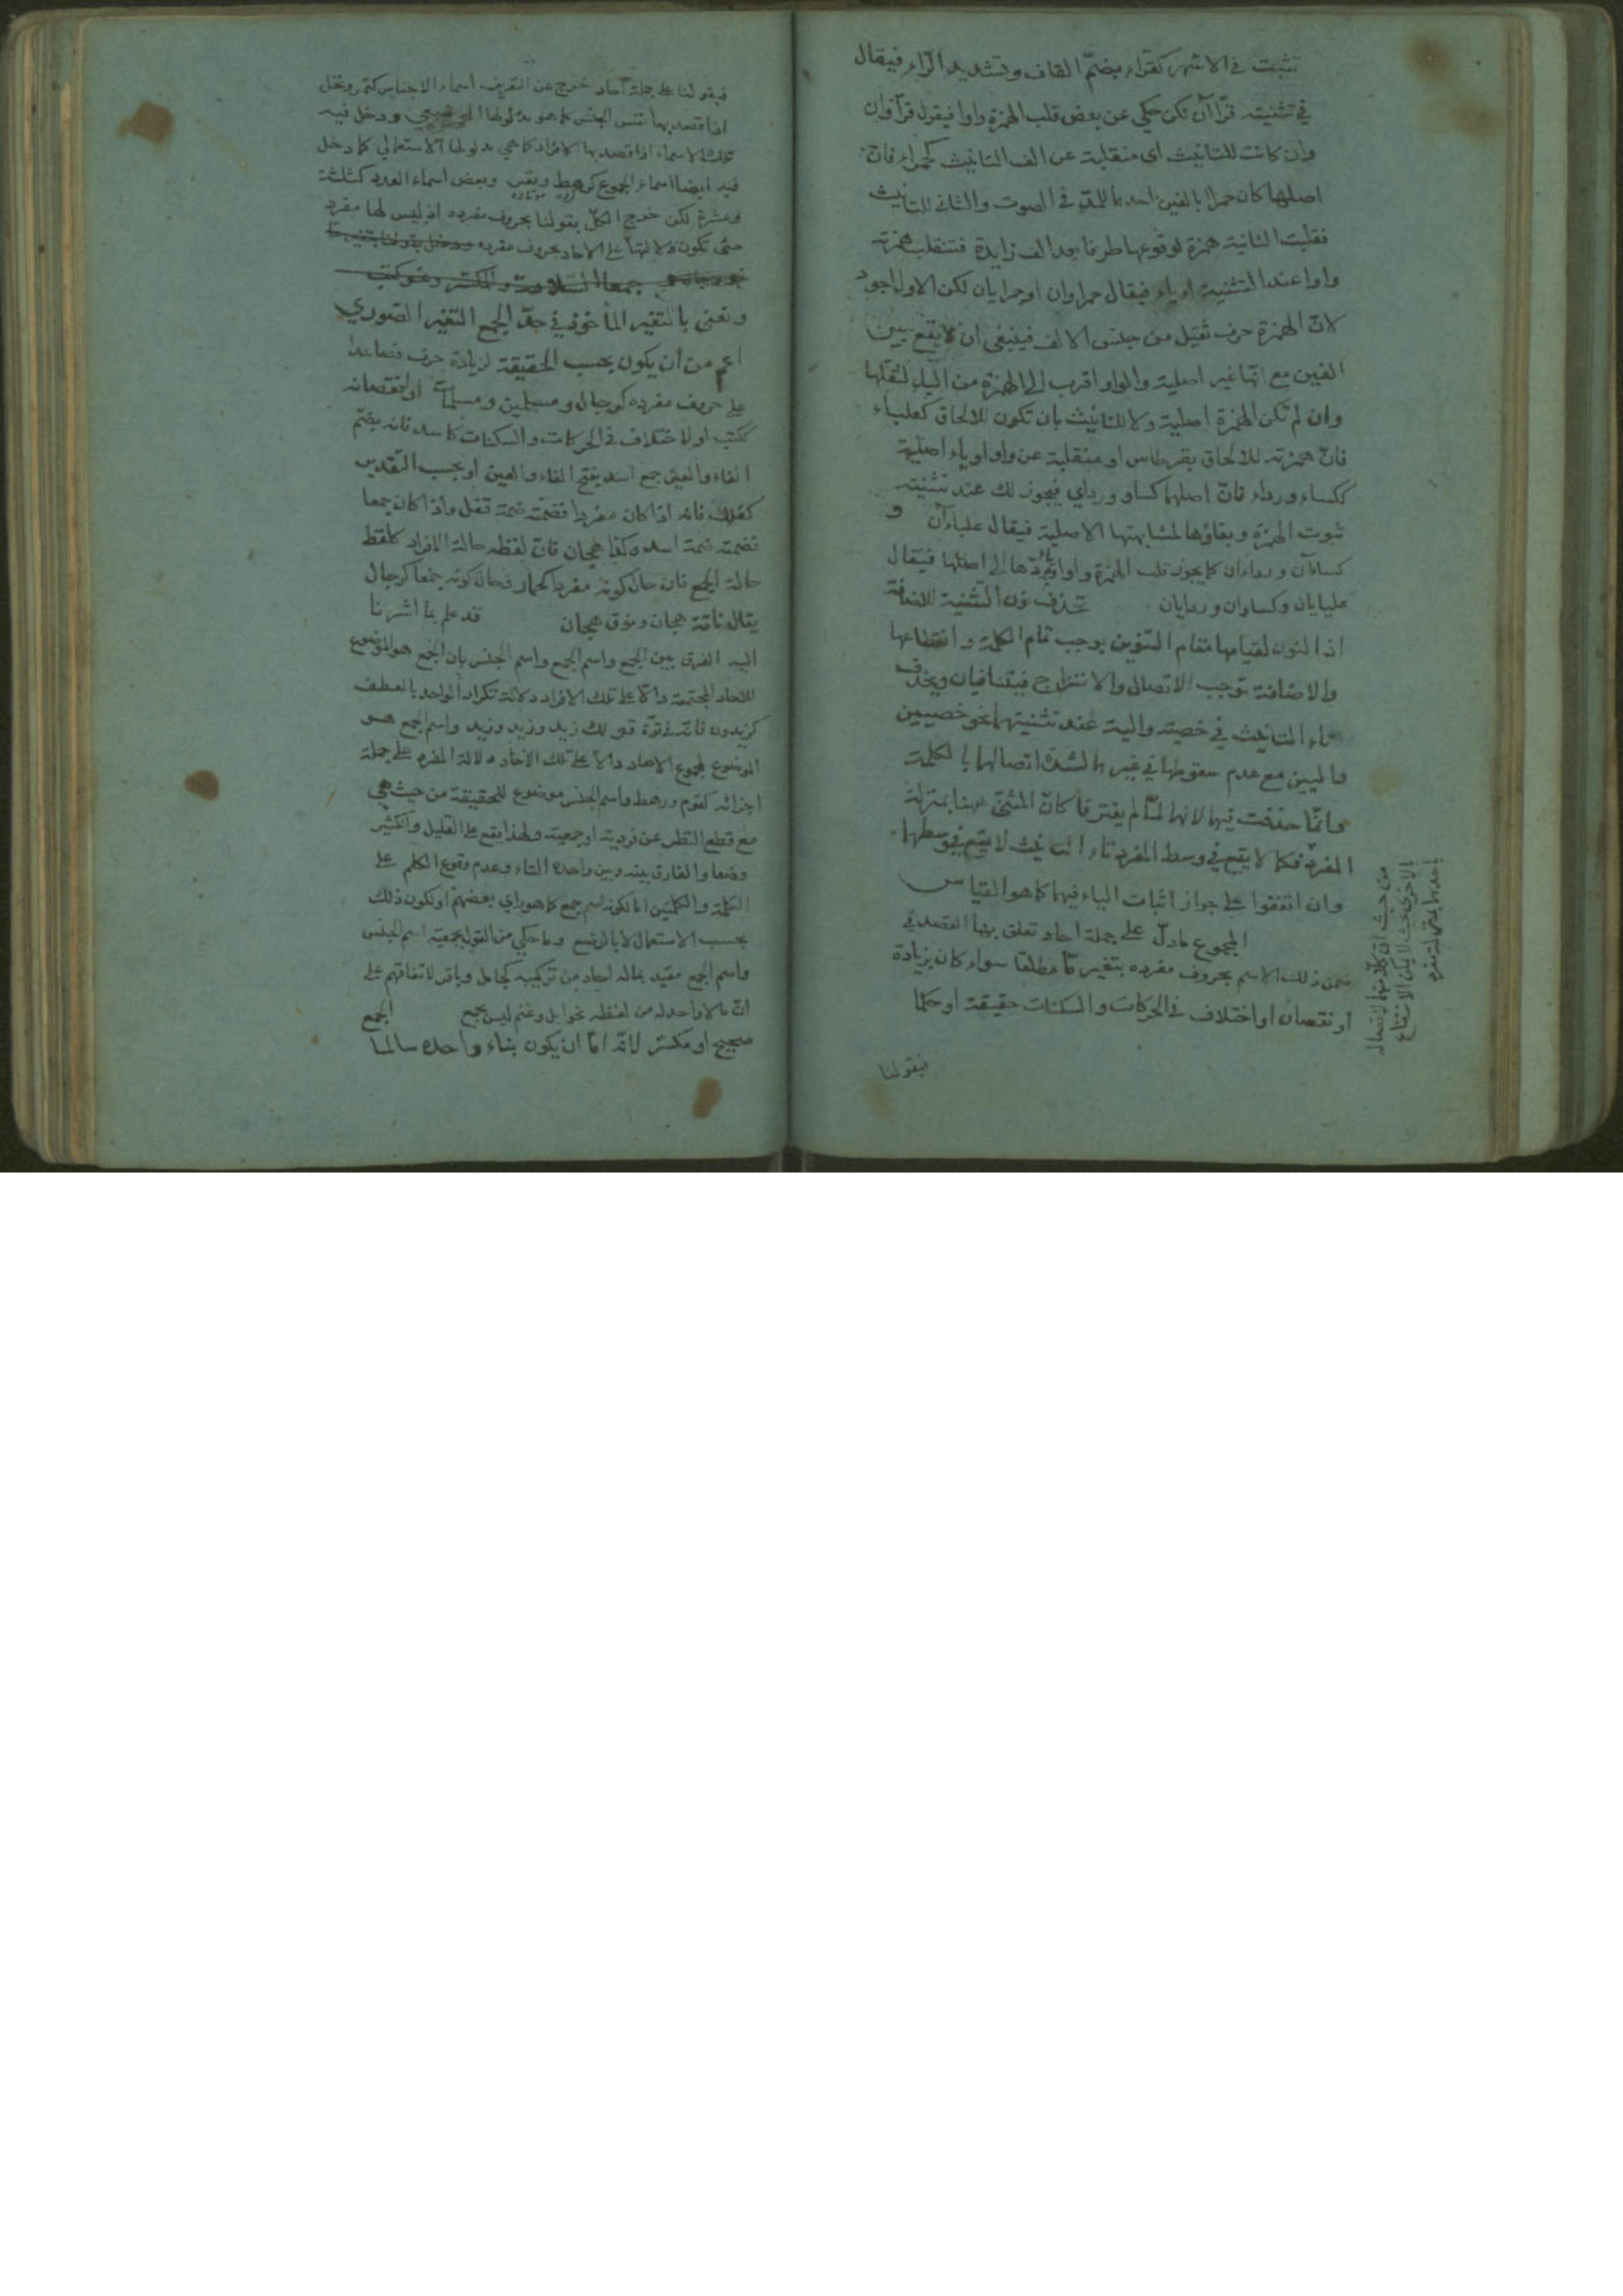 تثبت في الاشهر كقراء بضمّ القاف وتشديد الرّاء فيقال
في تثنيته قرّاآن لكن حكي عن بعض قلب الهمزة واوا فيقول قرّاوان
وان كانت للتانيث اى منقلبة عن الف التانيث كحمراء فانّ
اصلها كان حمراا بالفين احدىهما للمدّ في الصوت والثاني للتانيث
فقلبت الثانية همزة لوقوعها طرفا بعد الف زايدة فتنقلب همزته
واوا عند التثنية او ياء فيقال حمراوان او حمرايان لكن الاول اجود
لانّ الهمزة حرف ثقيل من جنس الالف فينبغى ان لا يقع بين
الفين مع انّها غير اصلية والواو اقرب الى الهمزة من الياء لثقلها
وان لم تكن الهمزة اصلية ولا للتانيث بان تكون للالحاق كعلباء
فانّ همزته للالحاق بقرطاس او منقلبة عن واو او ياء اصلية
ككساء ورداء فانّ اصلهما كساو ورداي فيجوز لك عند تثنيته
ثبوت الهمزة وبقاؤها لمشابهتها الاصلية فيقال علباءآن و
كساءآن ورداءان كما يجوز قلب الهمزة واوا وردّها الى اصلها فيقال
علبايان وكساوان وردايان تحذف نون التثنية للاضافة
اذ النون لقيامها مقام التنوين يوجب تمام الكلمة وانقطاعها
والاضافة توجب الاتصال والامتزاج فيتنافيان ويحذف
تاء التانيث في خصية والية عند تثنيتهما نحو خصيين
واليين مع عدم سقوطها في غيرهما لشدة اتصالهما بالكلمة
وانّما حذفت فيهما لانهما لمّا لم يفترقا كان المثنى منهما بمنزلة
المفرد فكما لا يقع في وسط المفرد تاء التانيث لا يقع في وسطهما
وان اتفقوا على جواز اثبات التاء فيهما كما هو القياس
المجموع مادلّ على جملة احاد تعلق بها القصد في
ضمن ذلك الاسم بحروف مفرده بتغير مّا مطلقا سواء كان بزيادة
او نقصان او اختلاف في الحركات والسكنات حقيقة او حكما
فبقولنا
من حيث انّ كلّا منهما لاتصاله
بالاخرى بحيث لا يمكن الانتفاع
باحدهما بمنزلة مفرد
فبقولنا على جملة آحاد خرج عن التعريف اسماء الاجناس كتمر ونخل
اذا قصد بها نفس الجنس كما هو مدلولها ودخل فيه
تلك الاسماء اذا قصد بها الافراد كما هي مدلولها الاستعمالي كما دخل
فيه ايضا اسماء الجموع كرهط ونفر وبعض اسماء العدد كثلثة
وعشرة لكن خرج الكلّ بقولنا بحروف مفرده اذ ليس لها مفرد
حتى تكون دلالتها على الاحاد بحروف مفرده ودخل بقولنا بتغير ما
جمعا السلامة والمكسر ونحو كتب
ونعنى بالتغير المأخوذ في حدّ الجمع التغير الصوري
اعم من ان يكون بحسب الحقيقة لزيادة حرف فصاعدا
على حروف مفرده كرجال ومسلمين ومسلمات او لنقصانه
ككتب او لاختلاف في الحركات والسكنات كاسد فانه بضمّ
الفاء والعين جمع اسد بفتح الفاء والعين او بحسب التقدير
كفلك فانه اذا كان مفردا فضمته ضمة قفل واذا كان جمعا
فضمته ضمة اسد وكذا هجان فانّ لفظه حالة الافراد كلفظ
حالة الجمع فان حال كونه مفردا كحمار وحال كونه جمعا كرجال
يقال ناقة هجان ونوق هجان قد علم بما اشرنا
اليه الفرق بين الجمع واسم الجمع واسم الجنس بان الجمع هو الموضوع
للاحاد المجتمعة دالّا على تلك الافراد دلالة تكرار الواحد بالعطف
كزيدون فانّه في قوّة قولك زيد وزيد وزيد واسم الجمع هو
الموضوع لمجموع الاحاد دالّا على تلك الآحاد دلالة المفرد على جملة
اجزائه كقوم ورهط واسم الجنس موضوع للحقيقة من حيث هي
مع قطع النظر عن فردية او جمعية ولهذا يقع على القليل والكثير
وضعا والفارق بينه وبين واحده التاء وعدم وقوع الكلم على
الكلمة والكلمتين امّا لكونه اسم جمع كما هو رأي بعضهم او لكون ذلك
بحسب الاستعمال لا بالوضع وما حكي من القول بجمعية اسم الجنس
واسم الجمع مقيد بماله احاد من تركيبه كجامل وباقر لاتفاقهم على
انّ ما لا واحد له من لفظه نحو ابل وغنم ليس بجمع الجمع
صحيح او مكسّر لانّه امّا ان يكون بناء واحده سالما